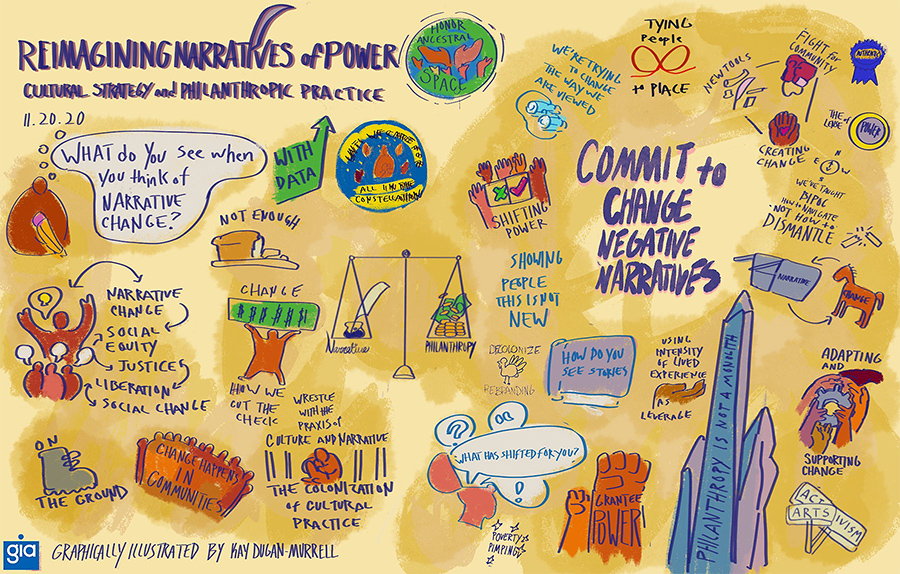 REIMAGINING NARRATIVES of POWER
CULTURAL STRATEGY and PHILANTHROPIC PRACTICE
11.20.20
HONOR
ANCESTRAL
SPACE
WHAT do YOU SEE WHEN
YOU THINK of
NARRATIVE
CHANGE?
WITH
DATA
ALL IN THE
CONSTELLATION
NOT ENOUGH
NARRATIVE
CHANGE
SOCIAL
EQUITY
JUSTICES
LIBERATION
SOCIAL CHANGE
CHANGE
$ $ $ $ $ $
HOW WE
CUT THE
CHECK
Narrative
PHILANTHROPY
ON
THE GROUND
CHANGE HAPPENS
IN
COMMUNITIES
WRESTLE
WITH THE
PRAXIS of
CULTURE AND NARRATIVE
THE COLONIZATION
OF CULTURAL
PRACTICE
gia
GRAPHICALLY ILLUSTRATED BY KAY DUGAN-MURRELL
WE'RE TRYING
TO CHANGE
THE WAY WE
ARE VIEWED
TYING
People
to PLACE
SHIFTING
POWER
COMMIT to
CHANGE
NEGATIVE
NARRATIVES
NEW TOOLS
FIGHT for
COMMUNITY
CREATING
CHANGE
THE
LOBE
of
POWER
N
E
W
WE'VE TAUGHT
BIPOC
HOW to NAVIGATE
NOT HOW to
DISMANTLE
NARRATIVE
CHANGE
SHOWING
PEOPLE
THIS IS NOT
NEW
DECOLONIZE
REBRANDING
HOW DO YOU
SEE STORIES
USING
INTENSITY
OF LIVED
EXPERIENCE
AS
LEVERAGE
PHILANTHROPY IS NOT A MONOLITH
ADAPTING
AND
SUPPORTING
CHANGE
?
WHAT HAS SHIFTED FOR YOU?
!
POVERTY
PIMPING
GRANTEE
POWER
ACT
ARTS
IVISM